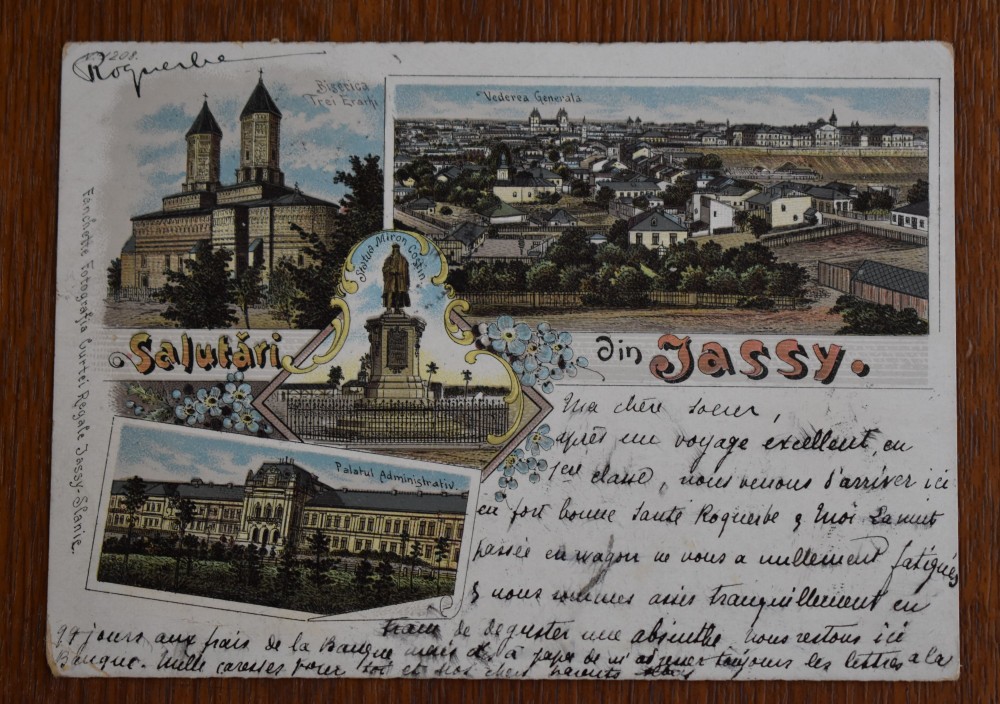 1208.
Roquerbe
Biserica
Trei Erarhi
Vederea Generala
Statua Miron Costin
Salutări din Jassy.
Palatul Administrativ.
Fanchette Fotografia Curtei Regale Jassy-Slanic.
Ma chère soeur,
après un voyage excellent, en
1ere classe, nous venons d'arriver ici
en fort bonne santé Roquerbe & moi La nuit
passée en wagon ne nous a nullement fatigués
& nous sommes assis tranquillement en
train de deguster une absinthe nous restons ici
jours aux frais de la Banque mais à papa de m'adresser toujours les lettres a la
Banque. Mille caresses pour toi et nos chers parents